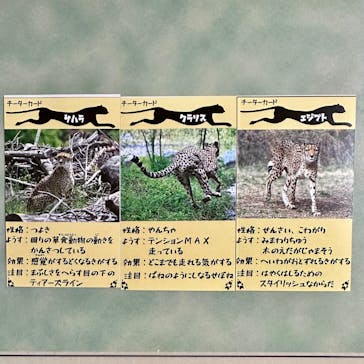 チーターカード
サハラ
性格：つよき
ようす：回りの草食動物の動きを
かんさつしている
効果：感覚がするどくなるきがする
注目：まぶしさをへらす目の下の
ティアーズライン
チーターカード
クラリス
性格：やんちゃ
ようす：テンションMAX
走っている
効果：どこまでも走れる気がする
注目：ばねのようにしなるせぼね
チーターカード
エジプト
性格：せんさい、こわがり
ようす：みまわりちゅう
木のえだがじゃまそう
効果：へいわがおとずれるきがする
注目：はやくはしるための
スタイリッシュなからだ